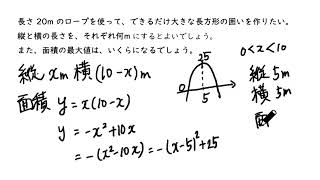 長さ 20m のロープを使って、できるだけ大きな長方形の囲いを作りたい。
縦と横の長さを、それぞれ何m にするとよいでしょう。
また、面積の最大値は、いくらになるでしょう。
縦 xm 横 (10-x)m
面積 y = x(10-x)
y = -x²+10x
= -(x²-10x) = -(x-5)²+25
25
0
5
0<x<10
縦 5m
横 5m
面